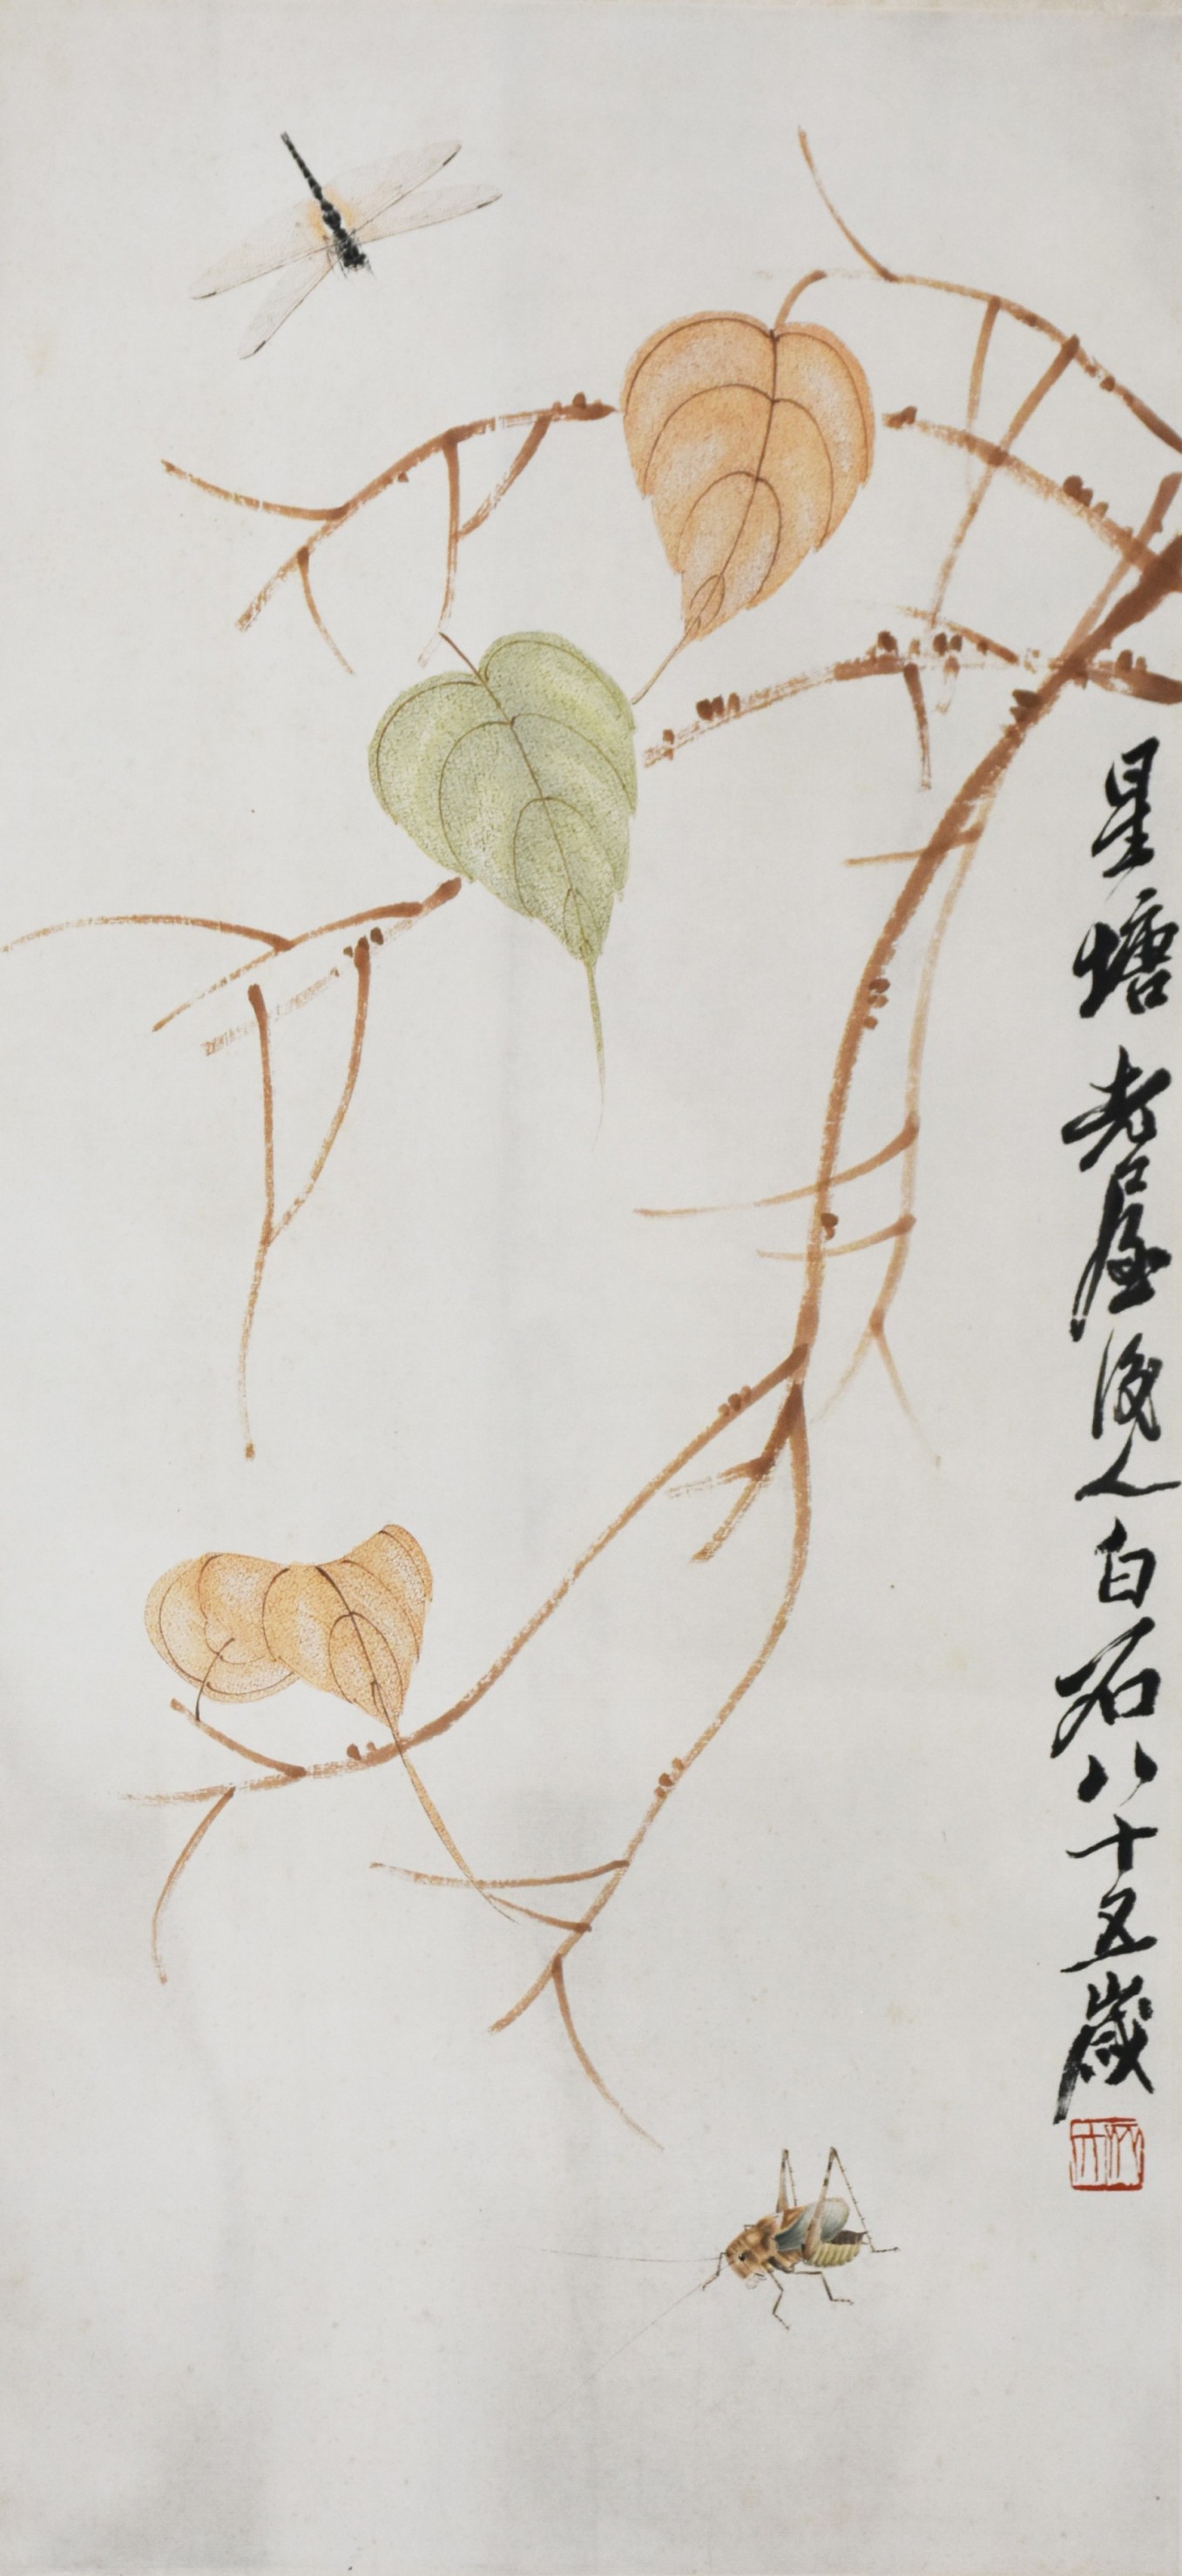 星塘老屋後人白石八十五歲